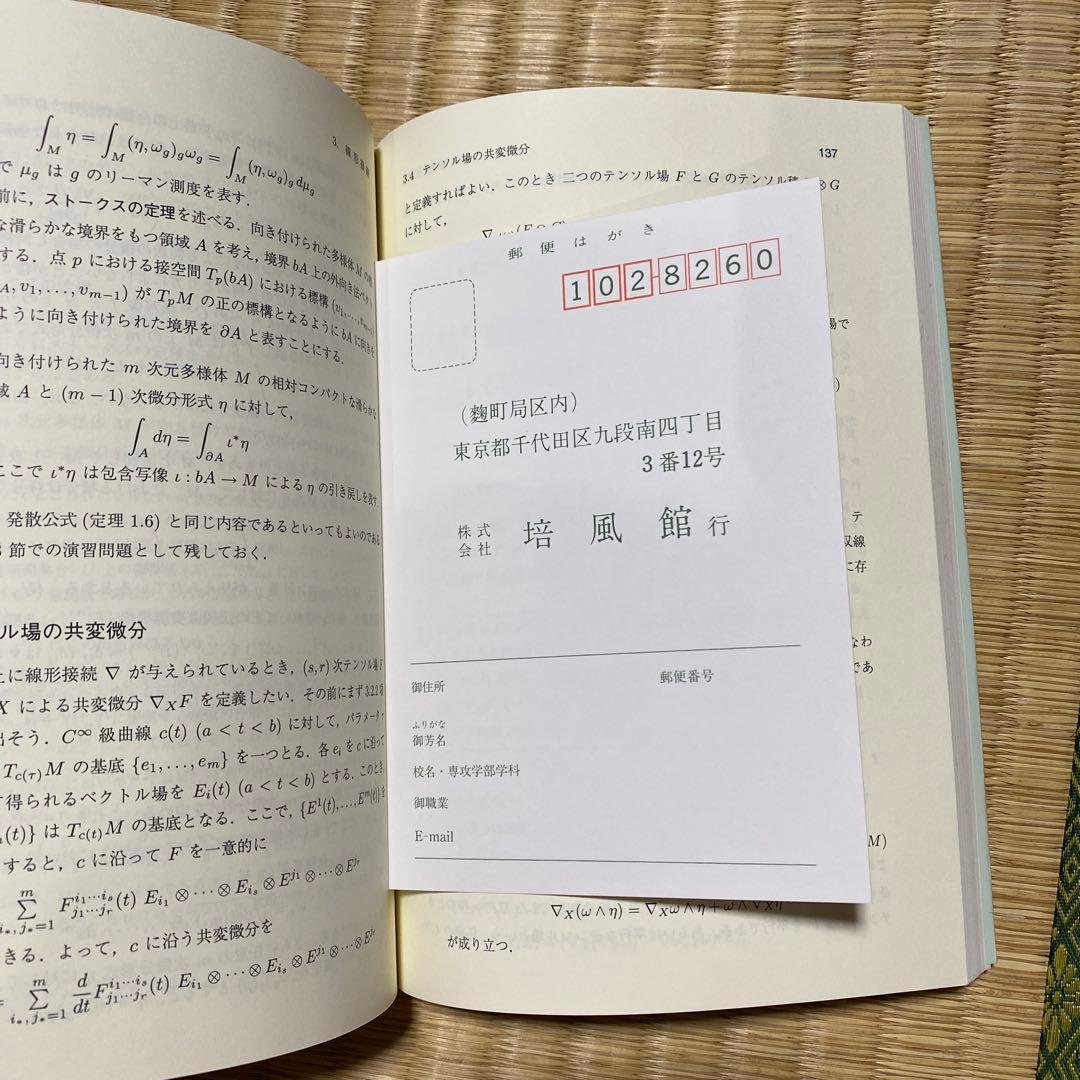 3. 線形接続
∫_M η = ∫_M (η, ω_g)_g ω_g = ∫_M (η, ω_g)_g dμ_g
で μ_g は g のリーマン測度を表す．
前に，ストークスの定理を述べる．向き付けられた多様体 M の相
な滑らかな境界をもつ領域 A を考え，境界 bA 上の外向き法ベクト
する．点 p における接空間 T_p(bA) における標構 (v_1, ..., v_{m-1})
_A, v_1, ..., v_{m-1}) が T_pM の正の標構となるように bA に向きを
ように向き付けられた境界を ∂A と表すことにする．
向き付けられた m 次元多様体 M の相対コンパクトな滑らかな
域 A と (m − 1) 次微分形式 η に対して，
∫_A dη = ∫_{∂A} ι*η
ここで ι*η は包含写像 ι : bA → M による η の引き戻しを表す．
発散公式 (定理 1.6) と同じ内容であるといってもよいのである
節での演習問題として残しておく．
ル場の共変微分
上に線形接続 ∇ が与えられているとき，(s, r) 次テンソル場 F
X による共変微分 ∇_X F を定義したい．その前にまず 3.2.2 項
出そう．C^∞ 級曲線 c(t) (a < t < b) に対して，パラメータ τ
T_{c(τ)}M の基底 {e_1, ..., e_m} を一つとる．各 e_i を c に沿って
て得られるベクトル場を E_i(t) (a < t < b) とする．このとき，
(t)} は T_{c(t)}M の基底となる．ここで，{E^1(t), ..., E^m(t)} を
すると，c に沿って F を一意的に
∑_{i_*, j_*=1}^m F^{i_1⋯i_s}_{j_1⋯j_r}(t) E_{i_1} ⊗ ⋯ ⊗ E_{i_s} ⊗ E^{j_1} ⊗ ⋯ ⊗ E^{j_r}
きる．よって，c に沿う共変微分を
= ∑_{i_*, j_*=1}^m d/dt F^{i_1⋯i_s}_{j_1⋯j_r}(t) E_{i_1} ⊗ ⋯ ⊗ E_{i_s} ⊗ E^{j_1} ⊗ ⋯ ⊗ E^{j_r}
3.4 テンソル場の共変微分 137
と定義すればよい．このとき 二つのテンソル場 F と G のテンソル積 ⊗ G
に対して，
場で
テ
収線
に存
なわ
であ
M)
∇_X(ω ∧ η) = ∇_Xω ∧ η + ω ∧ ∇_Xη
が成り立つ．
郵便はがき
102-8260
（麴町局区内）
東京都千代田区九段南四丁目
3番12号
株式会社 培風館 行
御住所 郵便番号
ふりがな
御芳名
校名・専攻学部学科
御職業
E-mail